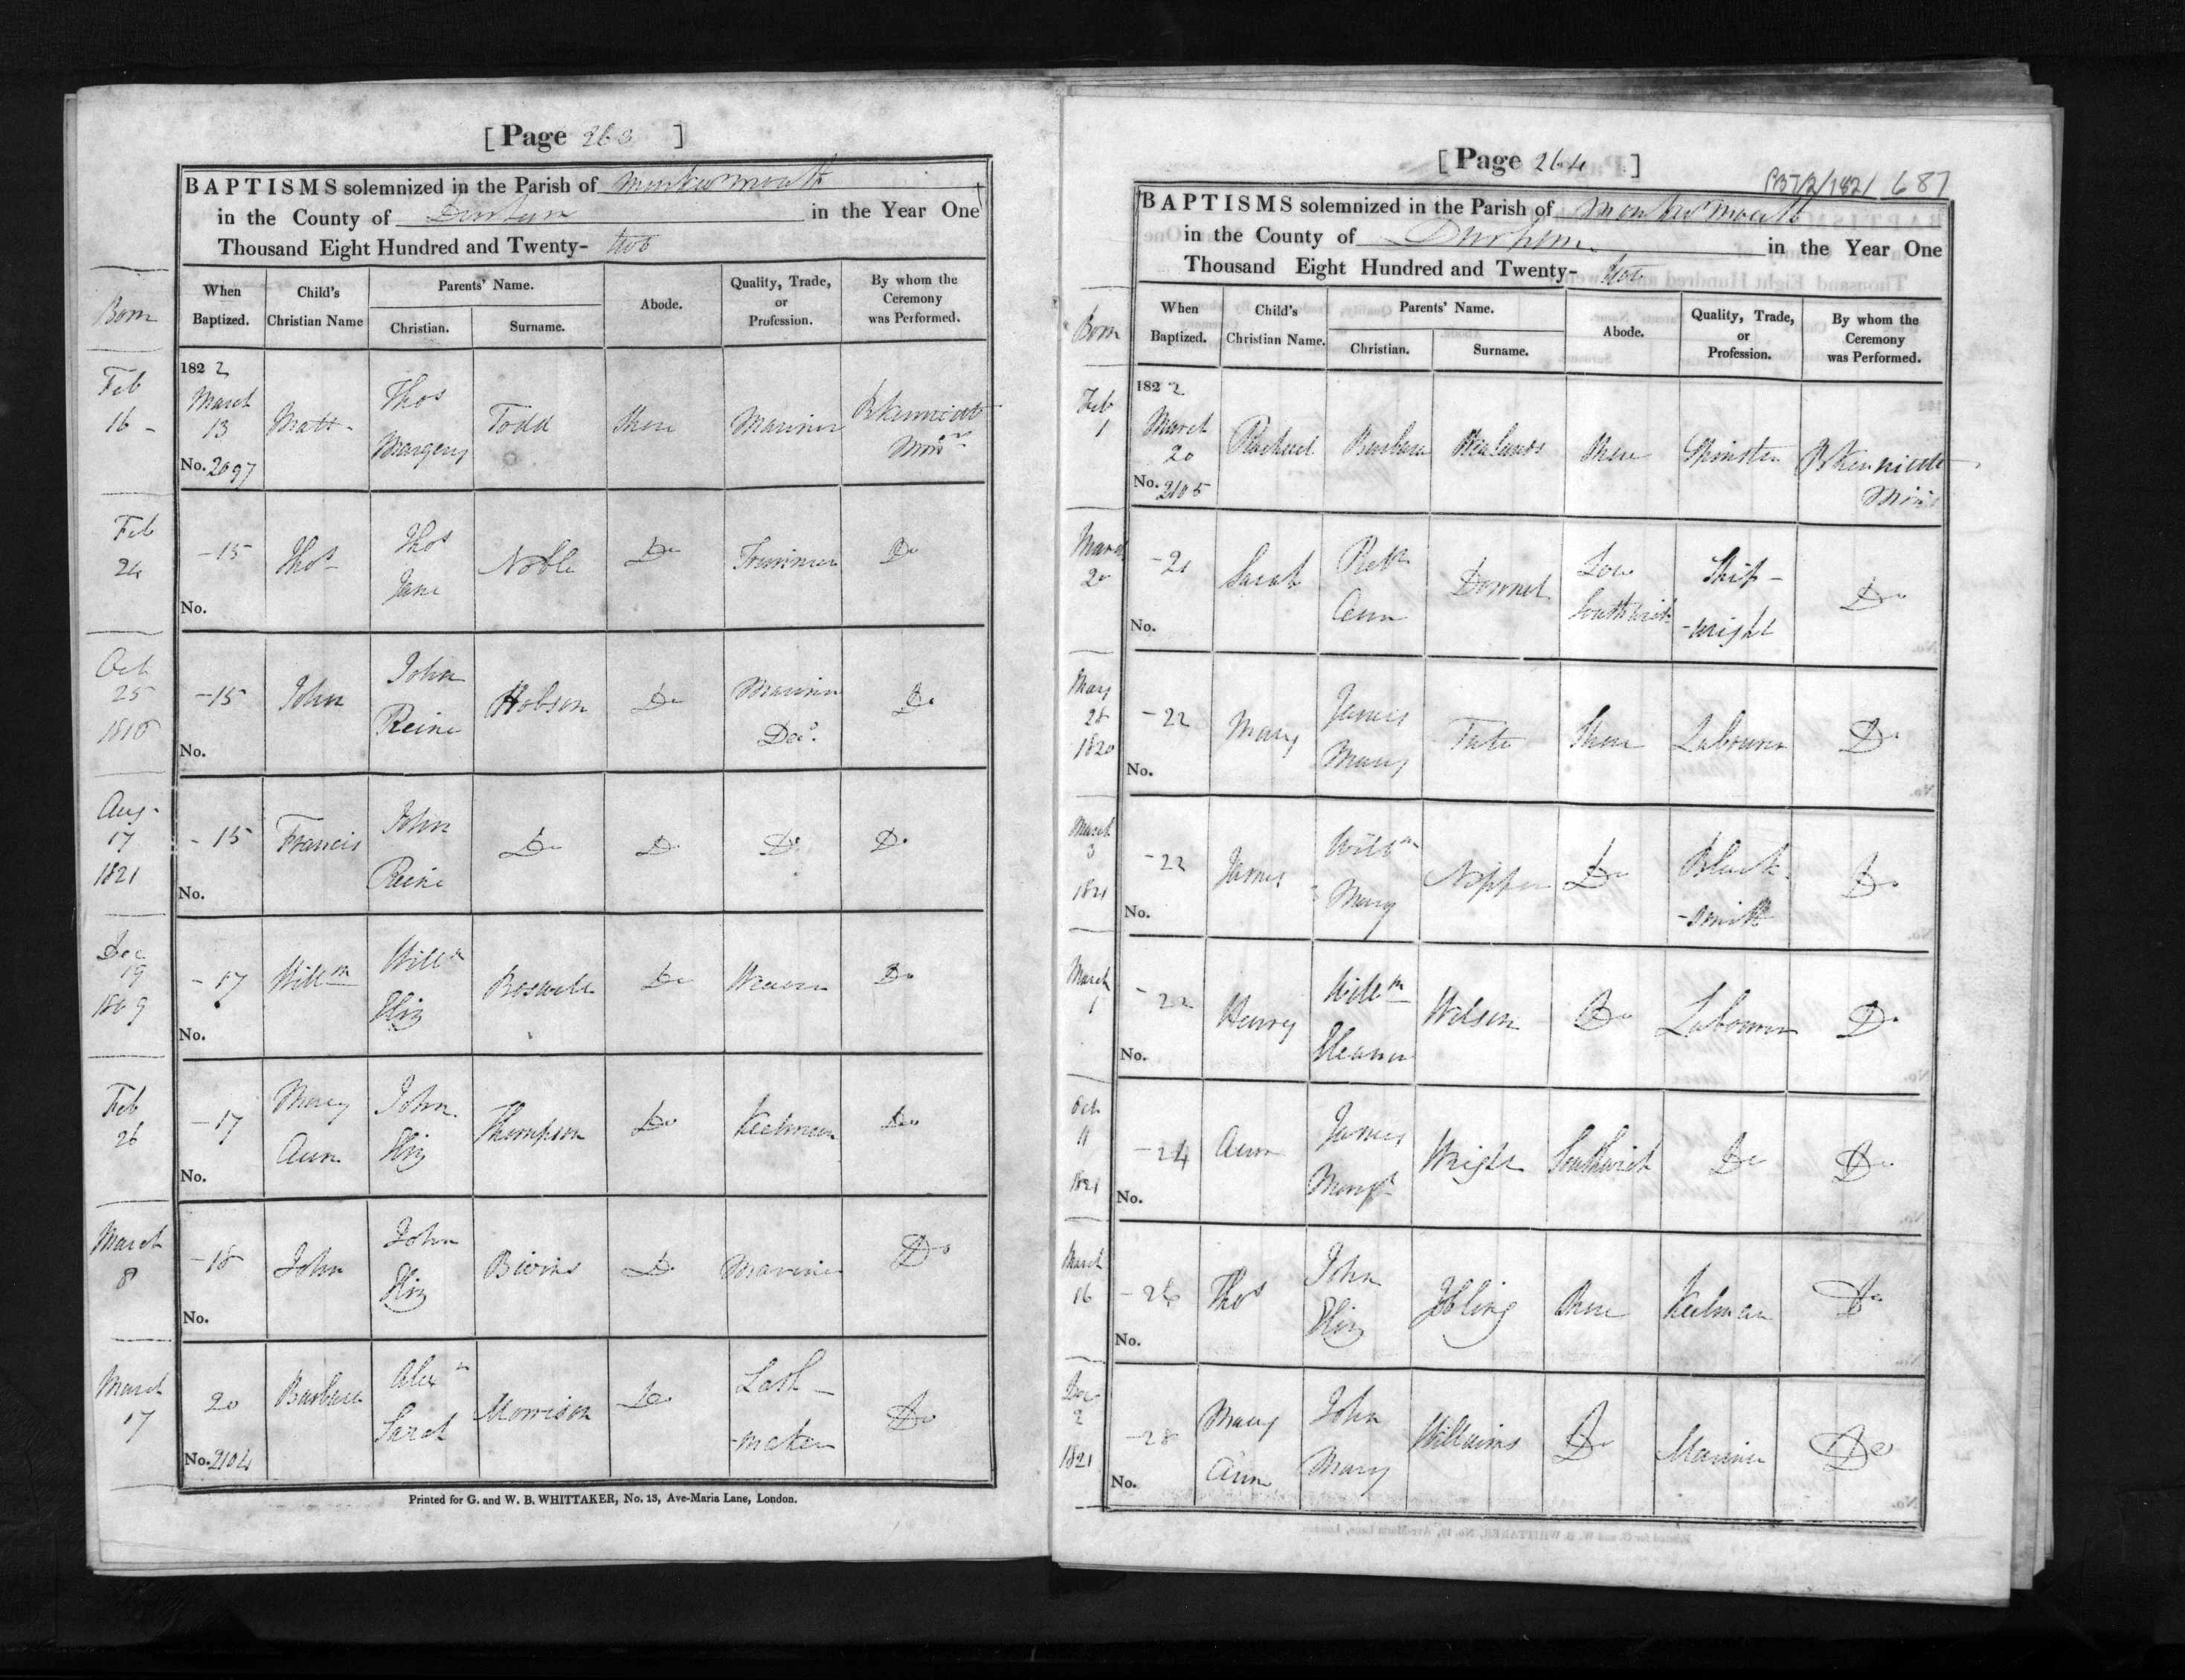 [ Page 263 ]
BAPTISMS solemnized in the Parish of Monkwearmouth
in the County of Durham in the Year One
Thousand Eight Hundred and Twenty- two
Born
When Baptized.
Child's Christian Name
Parents' Name.
Christian.
Surname.
Abode.
Quality, Trade, or Profession.
By whom the Ceremony was Performed.
Feb 16 -
1822 March 13
No. 2097
Matt-
Thos Margery
Todd
Shore
Mariner
B Kennicott Minr
Feb 24
-15
No.
Thos
Thos Jane
Noble
Do
Trimmer
Do
Oct 25
-15
No.
John
John Reine
Hobson
Do
Mariner Decd.
Do
Aug- 17 1821
-15
No.
Francis
John Reine
Do
Do
Do
Do
Dec 19 1809
-17
No.
Willm
Willm Eliz
Boswell
Do
Weaver
Do
Feb 26
-17
No.
Mary Ann
John Eliz
Thompson
Do
Keelman
Do
March 8
-18
No.
John
John Eliz
Bivins
Do
Mariner
Do
March 17
20
No. 2104
Barbara
Alexr Sarah
Morrison
Do
Last- -maker
Do
Printed for G. and W. B. WHITTAKER, No. 13, Ave-Maria Lane, London.
[ Page 264 ]
687
BAPTISMS solemnized in the Parish of Monkwearmouth
in the County of Durham in the Year One
Thousand Eight Hundred and Twenty- two
Born
When Baptized.
Child's Christian Name.
Parents' Name.
Christian.
Surname.
Abode.
Quality, Trade, or Profession.
By whom the Ceremony was Performed.
Feb 1
1822 March 20
No. 2105
Rachael
Barbara
Shore
Spinster
B Kennicott Minr
March 20
-21
No.
Sarah
Ann
Donnet
Low Southwick
Ship- -wright
Do
May 28 1820
-22
No.
Mary
James Mary
Tate
Shore
Labourer
Do
March 3 1821
-22
No.
James
Willm Mary
Do
Black- -smith
Do
March 1
-22
No.
Henry
Willm Eleanor
Wilson
Do
Labourer
Do
Oct 11 1821
-24
No.
Ann
James Margt
Wright
Southwick
Do
Do
March 16
-26
No.
Thos
John Eliz
Jobling
Shore
Keelman
Do
Dec 2 1821
-28
No.
Mary Ann
John Mary
Williams
Do
Mariner
Do